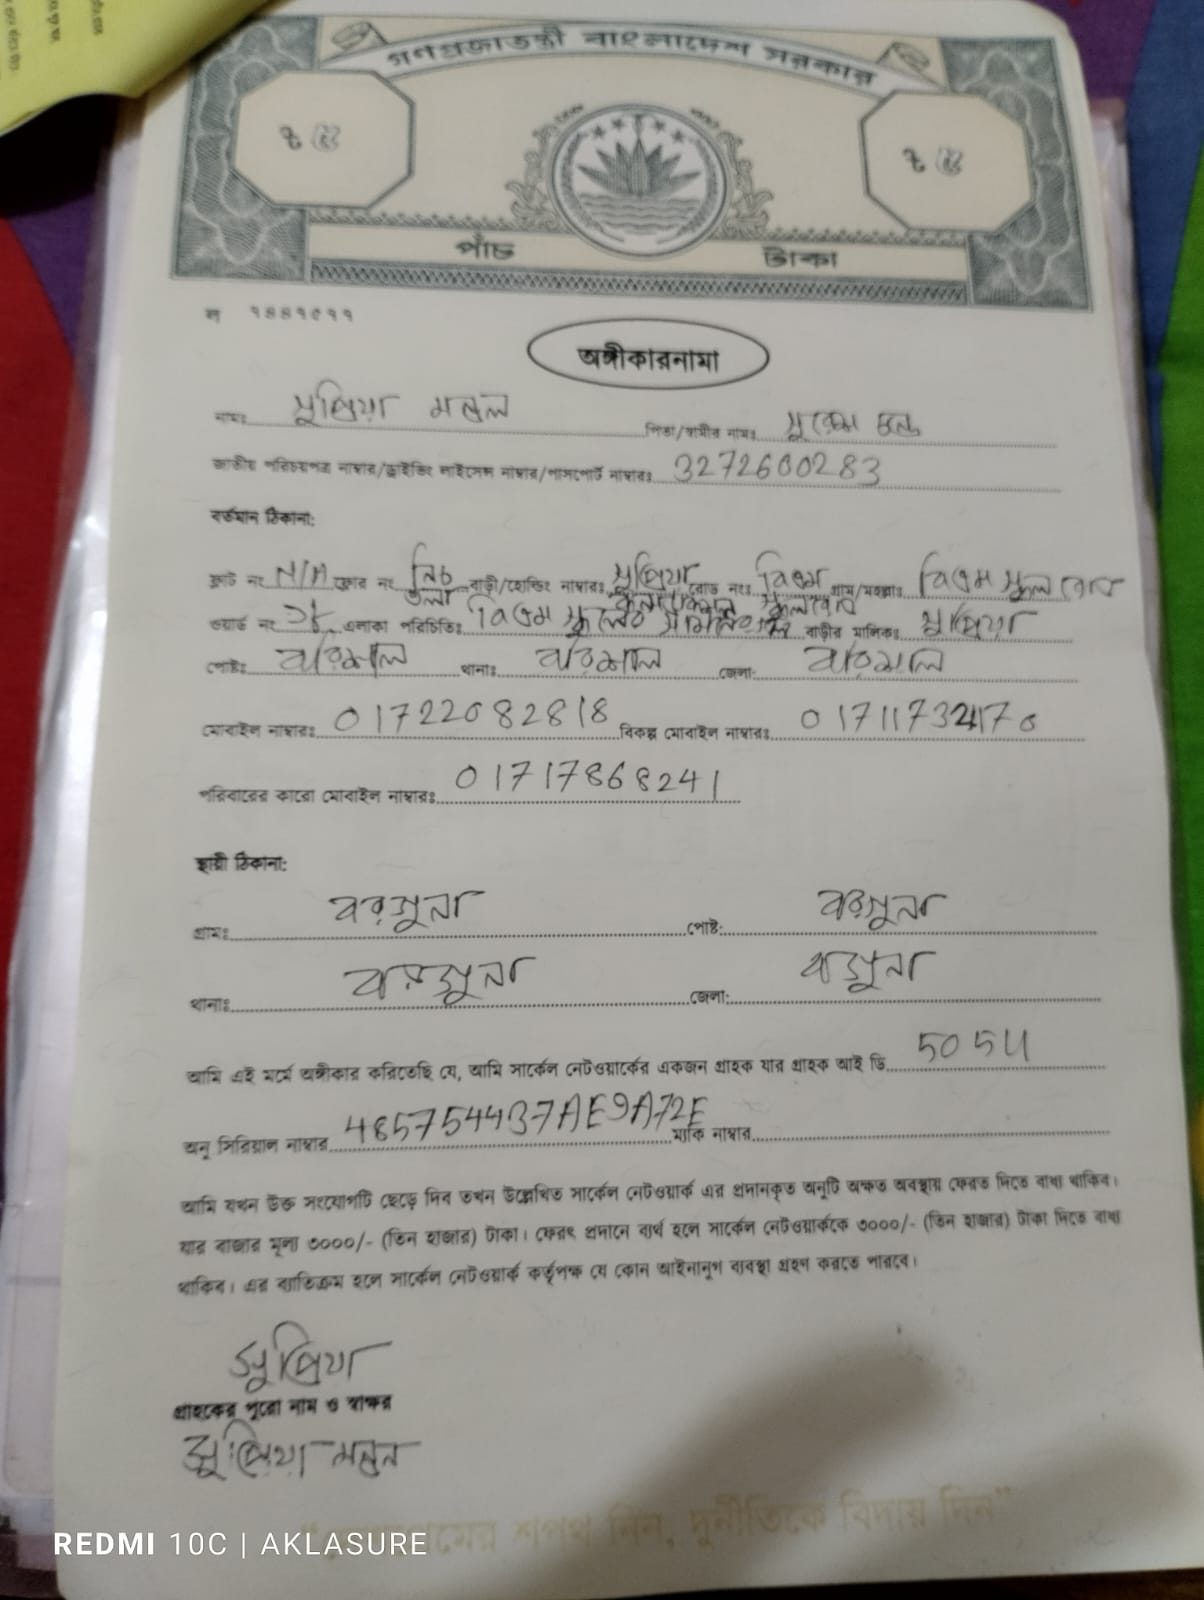 গণপ্রজাতন্ত্রী বাংলাদেশ সরকার
৳ ৫ ৳ ৫
পাঁচ টাকা
অঙ্গীকারনামা
নামঃ সুপ্রিয়া মন্ডল পিতা/স্বামীর নামঃ সুরেস চন্দ্র
জাতীয় পরিচয়পত্র নাম্বার/ড্রাইভিং লাইসেন্স নাম্বার/পাসপোর্ট নাম্বারঃ 3272600283
বর্তমান ঠিকানা:
ফ্লাট নং N/A ফ্লোর নং নিচ তলা বাড়ী/হোল্ডিং নাম্বারঃ সুপ্রিয়া রোড নংঃ বিএম স্কুল রোড গ্রাম/মহল্লাঃ বিএম স্কুল রোড
ওয়ার্ড নং এলাকা পরিচিতিঃ বিএম স্কুলের বাড়ীর মালিকঃ সুপ্রিয়া
পোষ্টঃ বরিশাল থানাঃ বরিশাল জেলা: বরিশাল
মোবাইল নাম্বারঃ 01722082818 বিকল্প মোবাইল নাম্বারঃ
পরিবারের কারো মোবাইল নাম্বারঃ 01717868241
স্থায়ী ঠিকানা:
গ্রামঃ বরগুনা পোষ্ট: বরগুনা
থানাঃ বরগুনা জেলা: বরগুনা
আমি এই মর্মে অঙ্গীকার করিতেছি যে, আমি সার্কেল নেটওয়ার্কের একজন গ্রাহক যার গ্রাহক আই ডি 5054
অনু সিরিয়াল নাম্বার 485754437AE9A72E ম্যাক নাম্বার
আমি যখন উক্ত সংযোগটি ছেড়ে দিব তখন উল্লেখিত সার্কেল নেটওয়ার্ক এর প্রদানকৃত অনুটি অক্ষত অবস্থায় ফেরত দিতে বাধ্য থাকিব।
যার বাজার মূল্য ৩০০০/- (তিন হাজার) টাকা। ফেরৎ প্রদানে ব্যর্থ হলে সার্কেল নেটওয়ার্ককে ৩০০০/- (তিন হাজার) টাকা দিতে বাধ্য
থাকিব। এর ব্যতিক্রম হলে সার্কেল নেটওয়ার্ক কর্তৃপক্ষ যে কোন আইনানুগ ব্যবস্থা গ্রহণ করতে পারবে।
সুপ্রিয়া
গ্রাহকের পুরো নাম ও স্বাক্ষর
সুপ্রিয়া মন্ডল
শপথ নিন, দুর্নীতিকে বিদায় দিন"
REDMI 10C | AKLASURE